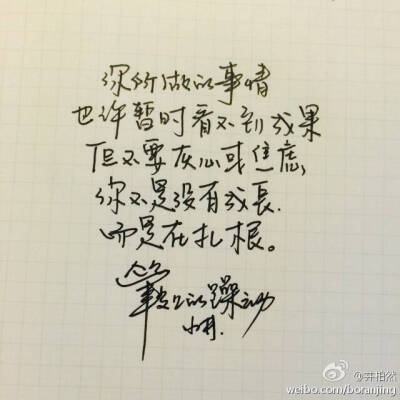 你所做的事情
也许暂时看不到成果
但不要灰心或焦虑,
你不是没有成长.
而是在扎根。
的躁动
小井.
@井柏然
weibo.com/boranjing